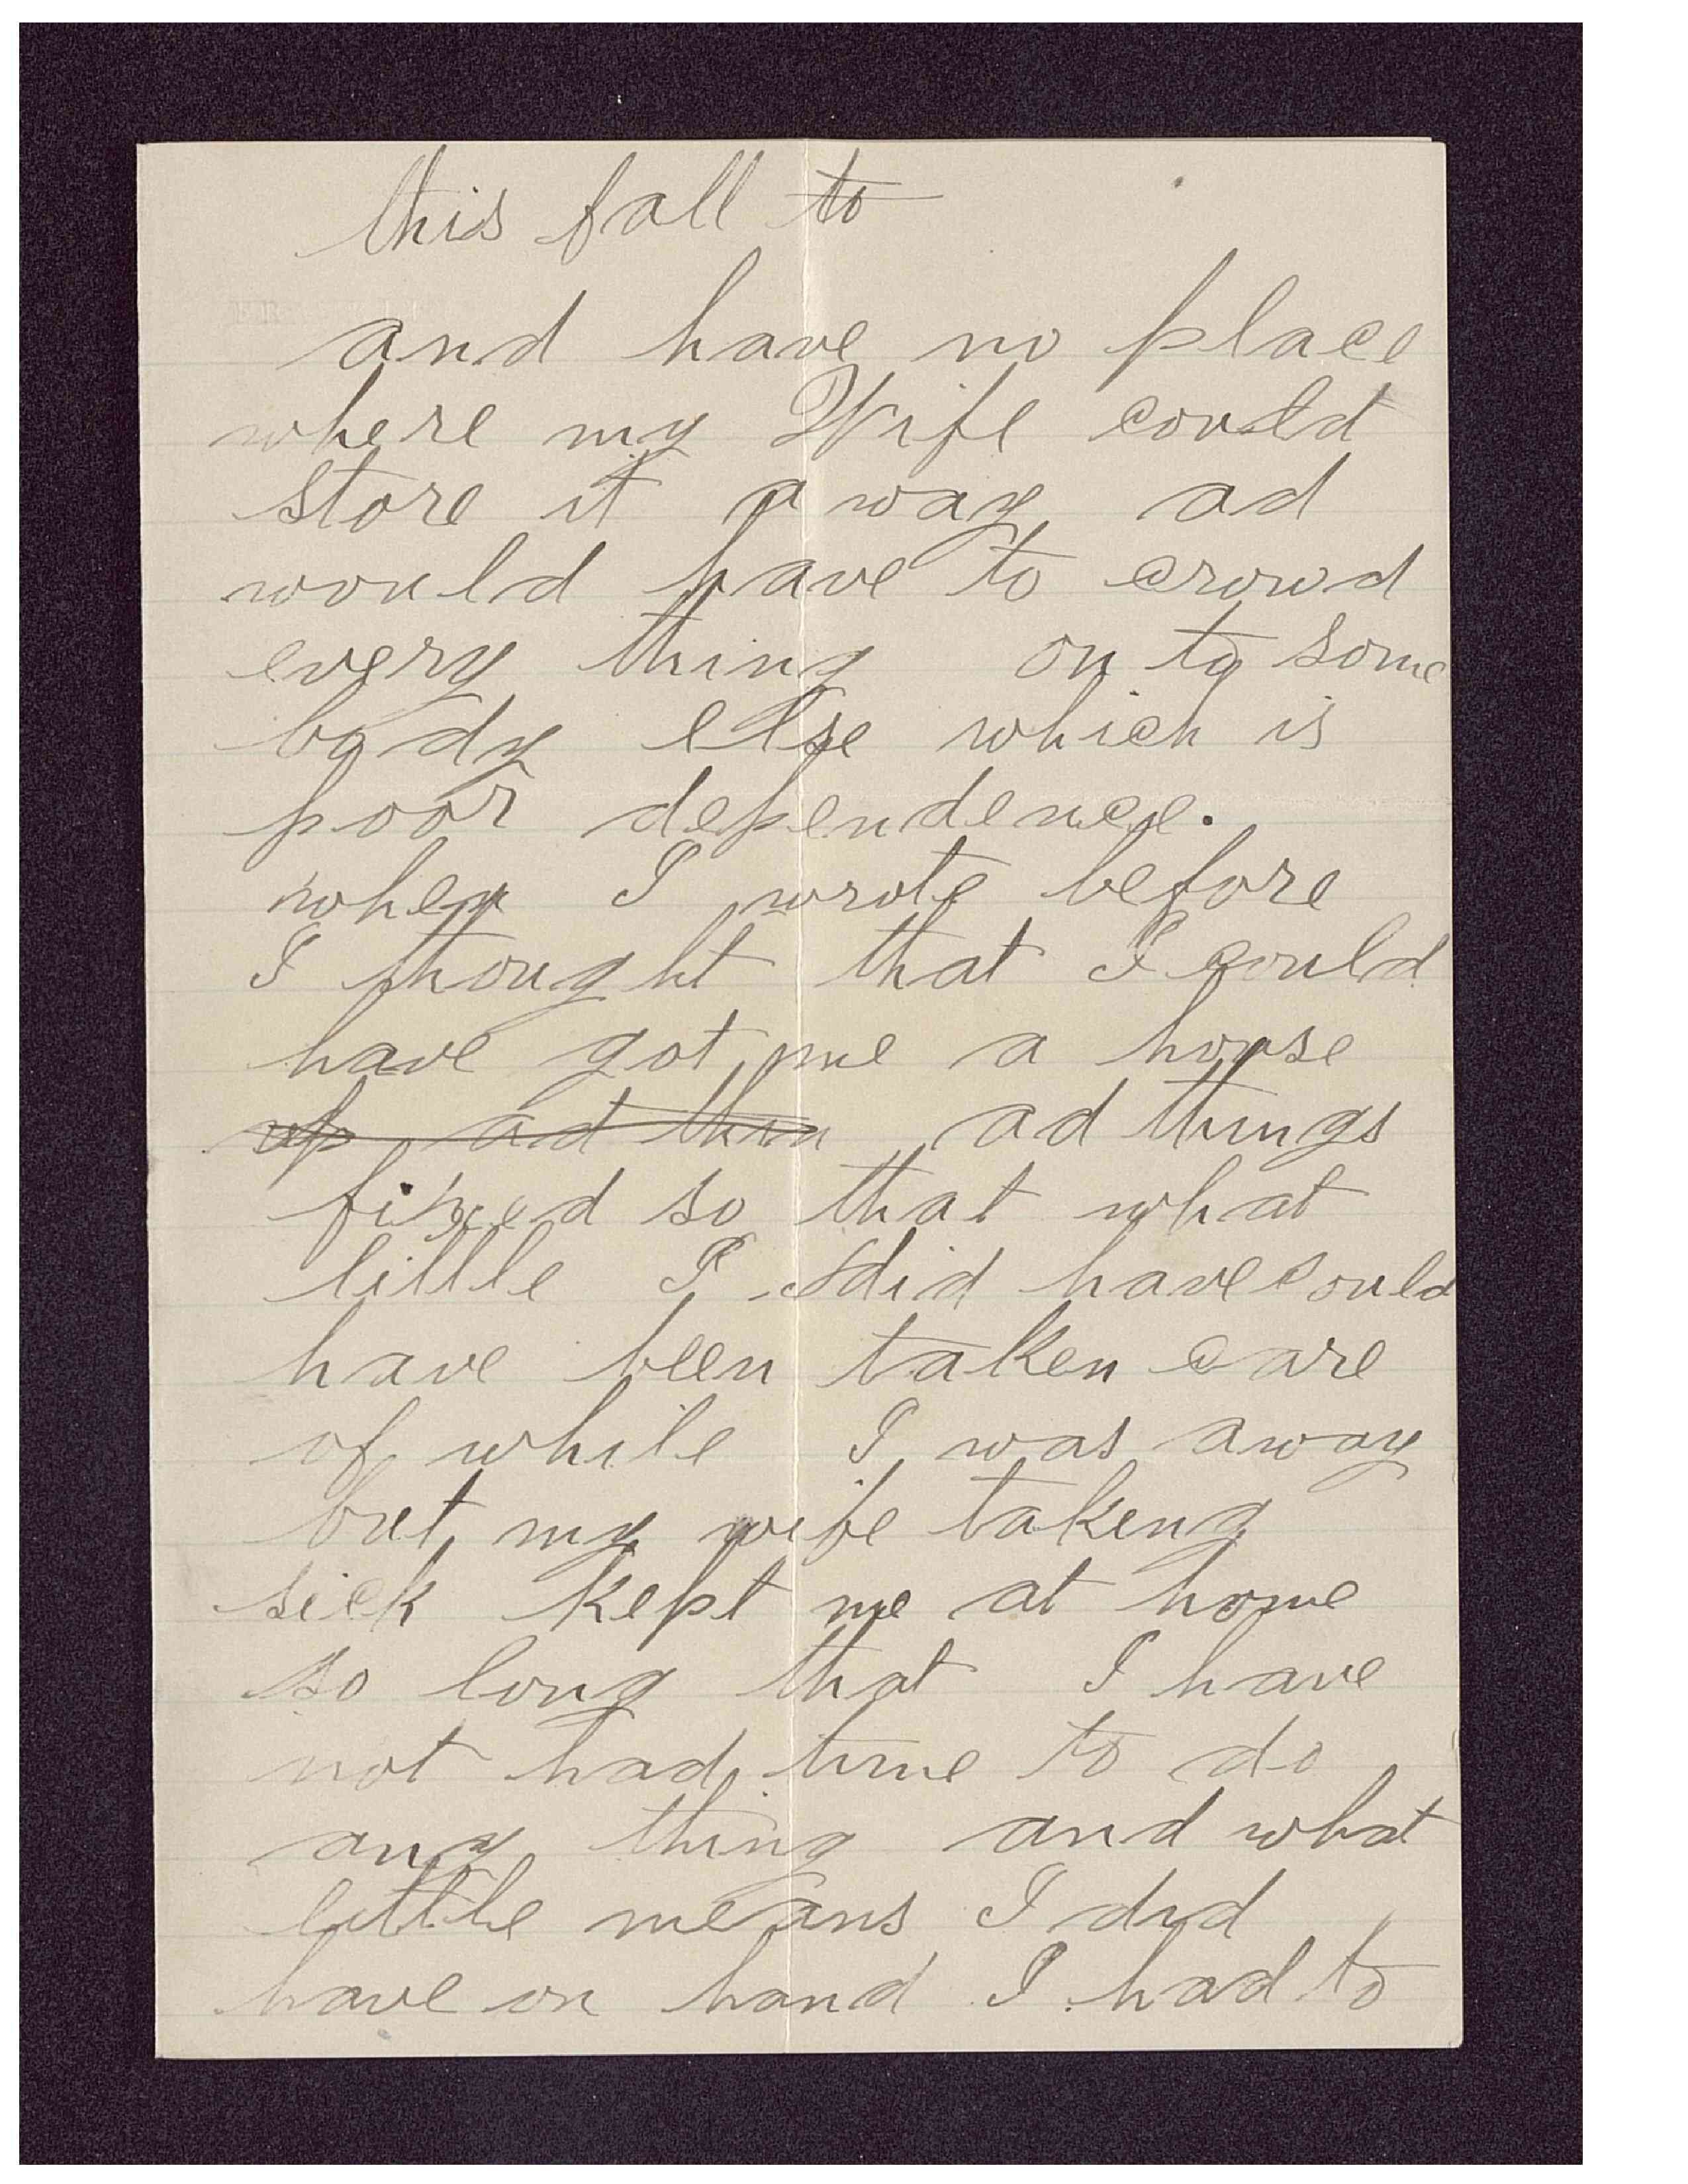 this fall to
and have no place
where my Wife could
store it away ad
would have to crowd
every thing on to some
body else which is
poor dependence.
when I wrote before
I thought that I could
have got me a house
up ad then ad things
fixed so that what
little I did have could
have been taken care
of while I was away
but my wife takeng
sick kept me at home
so long that I have
not had time to do
any thing and what
little means I did
have on hand I had to